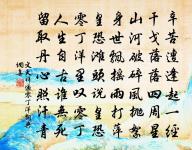 辛苦遭逢起一經
干戈落落四周星
山河破碎風拋絮
身世飄搖雨打萍
皇恐灘頭說皇恐
零丁洋里嘆零丁
人生自古誰無死
留取丹心照汗青
文天祥過零丁洋